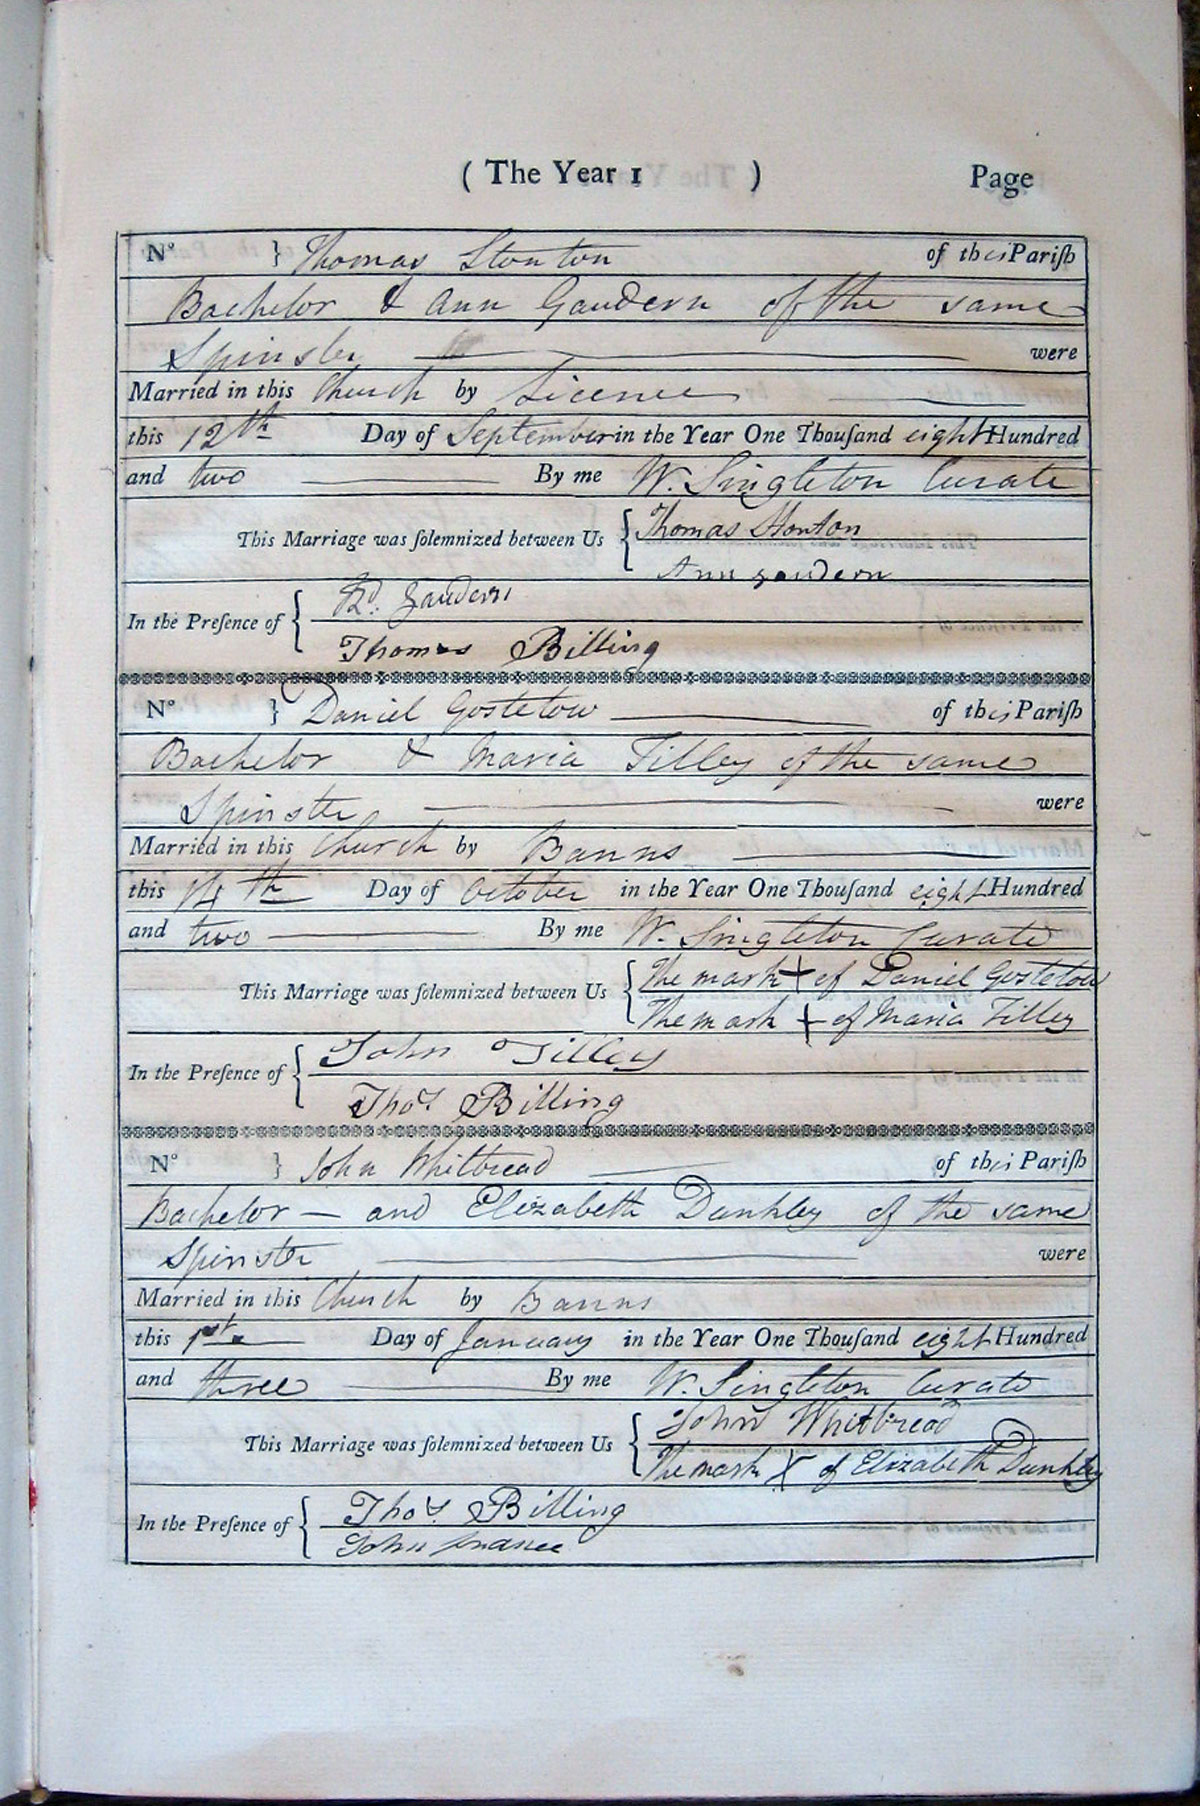 ( The Year 1 ) Page
No } Thomas Stonton of this Pariſh
Bachelor & Ann Gaudern of the same
Spinster were
Married in this Church by Licence
this 12th Day of September in the Year One Thouſand eight Hundred
and two By me W. Singleton Curate
This Marriage was ſolemnized between Us { Thomas Stonton
Ann gaudern
In the Preſence of { Rd. Gaudern
Thomas Billing
No } Daniel Gostelow of this Pariſh
Bachelor & Maria Tilley of the same
Spinster were
Married in this Church by Banns
this 14th Day of October in the Year One Thouſand eight Hundred
and two By me W. Singleton Curate
This Marriage was ſolemnized between Us { The mark + of Daniel Gostelow
The mark + of Maria Tilley
In the Preſence of { John Tilley
Thos. Billing
No } John Whitbread of this Pariſh
Bachelor – and Elizabeth Dunkley of the same
Spinster were
Married in this Church by Banns
this 1st. Day of January in the Year One Thouſand eight Hundred
and three By me W. Singleton Curate
This Marriage was ſolemnized between Us { John Whitbread
The mark X of Elizabeth Dunkley
In the Preſence of { Thos. Billing
John